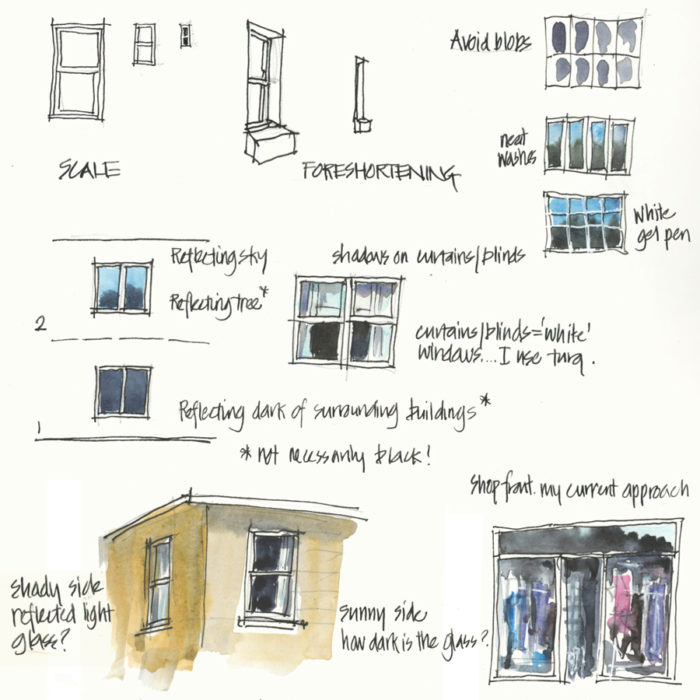 Avoid blobs
SCALE
FORESHORTENING
neat
washes
white
gel pen
Reflecting sky
shadows on curtains/blinds
Reflecting tree*
2
curtains/blinds='white'
windows....I use turq.
Reflecting dark of surrounding buildings*
1
* not necessarily black!
shop front. my current approach
shady side
reflected light
glass?
sunny side
how dark is the glass?